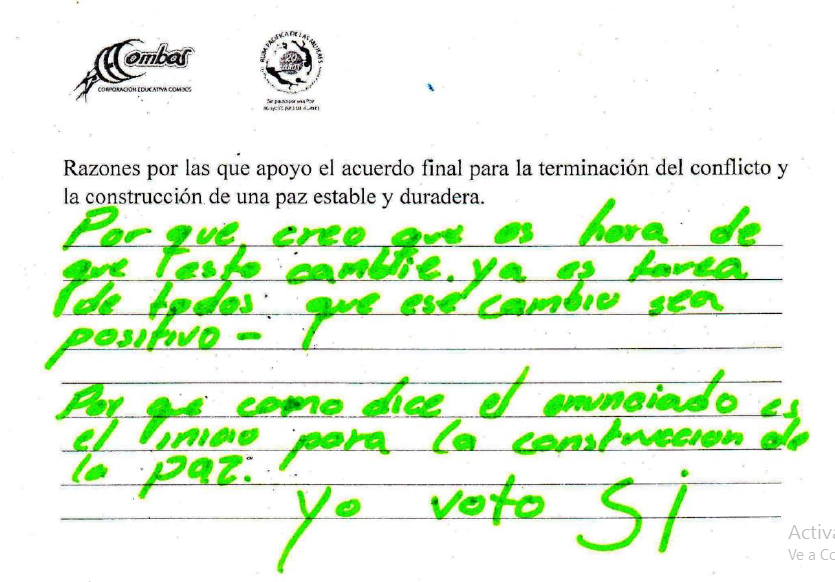 Combos
CORPORACIÓN EDUCATIVA COMBOS
RUTA PACIFICA DE LAS MUJERES
20 AÑOS
Razones por las que apoyo el acuerdo final para la terminación del conflicto y
la construcción de una paz estable y duradera.
Por que creo que es hora de
que esto cambie. ya es tarea
de todos que ese cambio sea
positivo -
Por que como dice el enunciado es
el inicio para la construccion de
la paz.
yo voto SI
Activa
Ve a Co